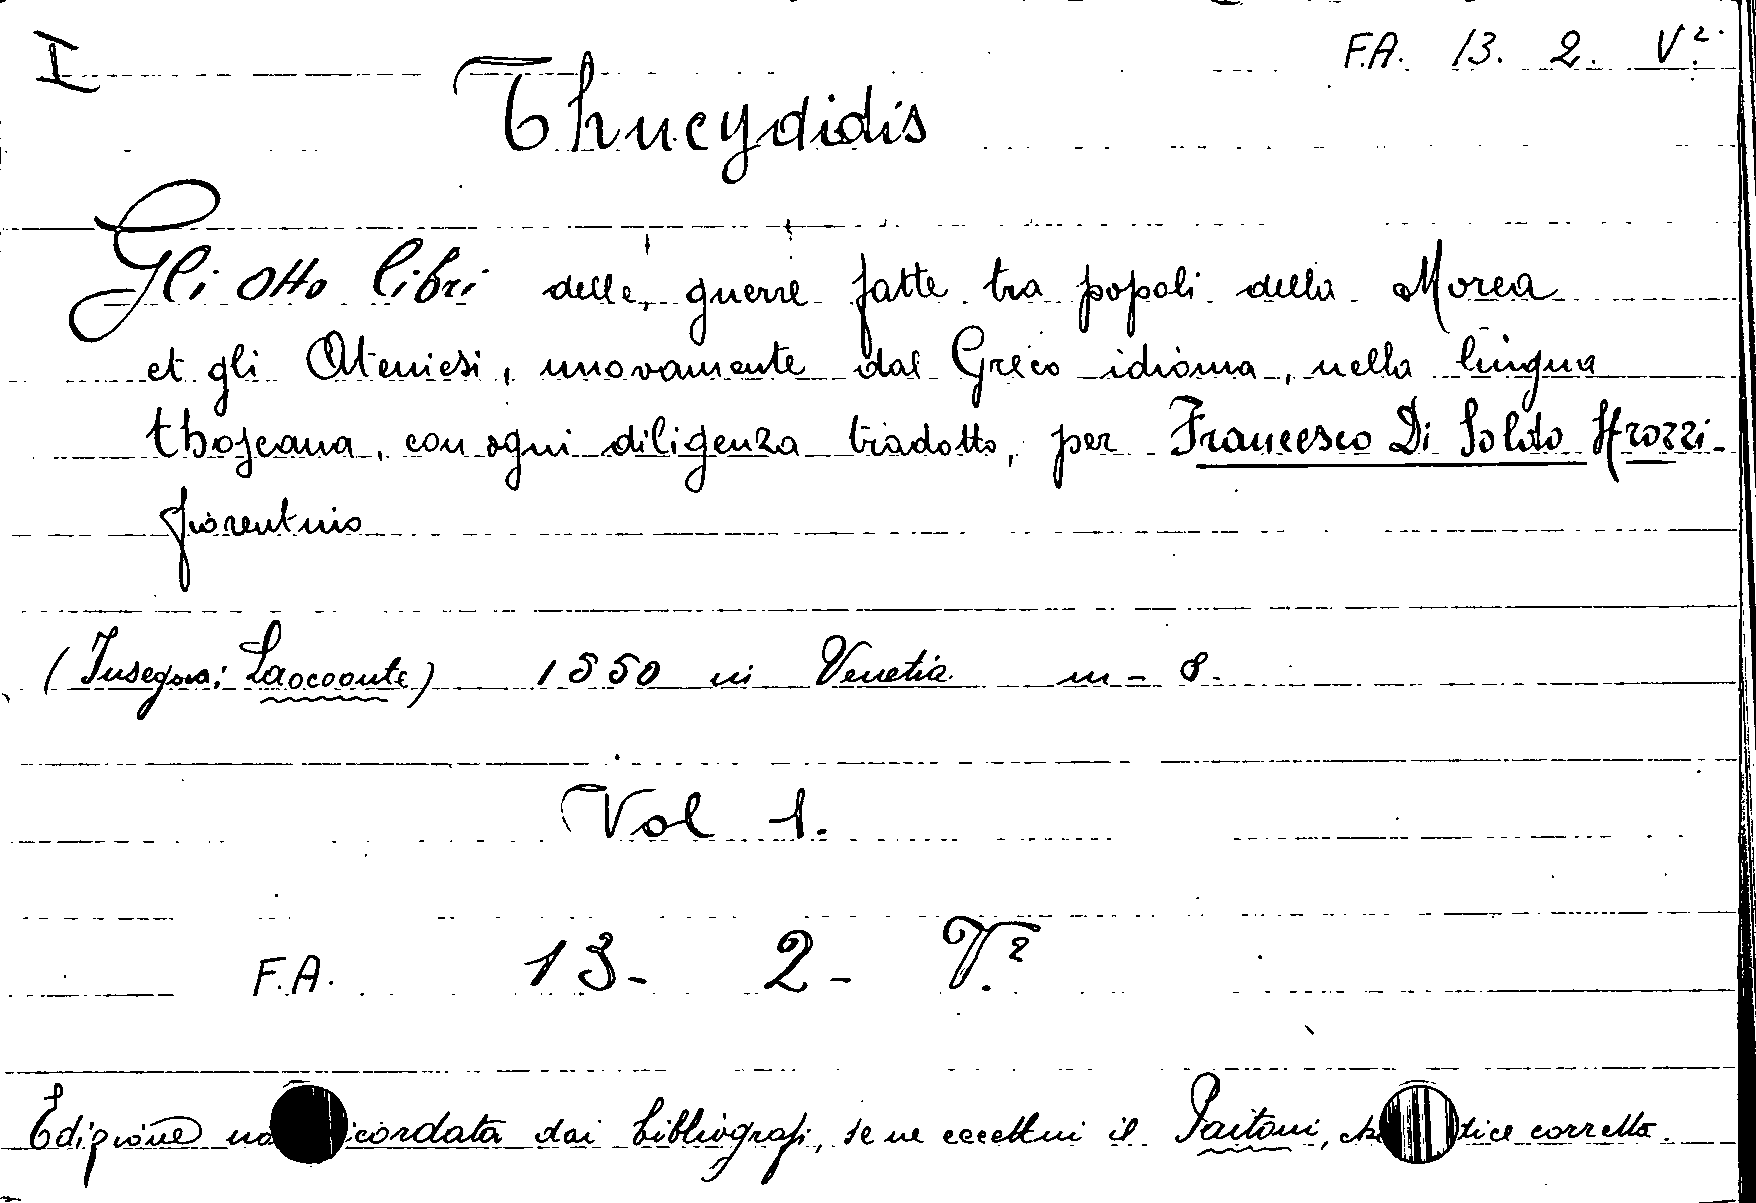 I
F.A. 13. 2. V².
Thucydidis
Gli otto libri delle guerre fatte tra popoli della Morea
et gli Ateniesi, nuovamente dal Greco idioma, nella lingua
thoscana, con ogni diligenza tradotto, per Francesco Di Soldo Strozzi
fiorentino
(Insegna: Laocoonte) 1550 in Venetia in-8.
Vol 1.
F.A. 13- 2- V.²
Edizione icordata dai bibliografi, se ne eccettui il Paitoni, dice corretto.